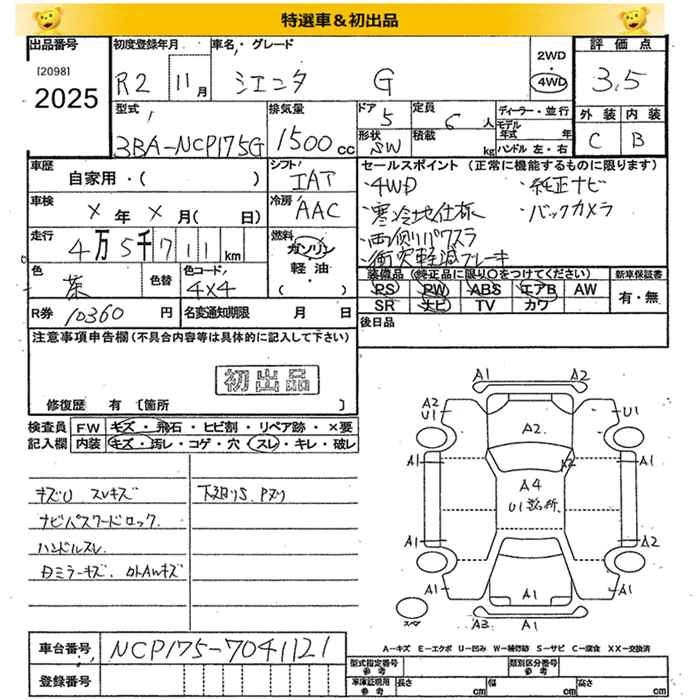 特選車&初出品
出品番号
[2098]
2025
初度登録年月
R2 11月
車名・グレード
シエンタ G
2WD
・
4WD
評価点
3.5
外装 内装
C B
型式
3BA-NCP175G
排気量
1500cc
ドア
5
定員
6人
形状
SW
積載
kg
ディーラー・並行
モデル
年式 年
ハンドル 左・右
車歴
自家用・( )
シフト
IAT
車検
×年×月(日)
冷房
AAC
走行
4万5千711km
燃料
ガソリン
軽油・
( )
色
茶
色替
色コード
4X4
R券 10360円
名変通知期限 月 日
セールスポイント (正常に機能するものに限ります)
・4WD ・純正ナビ
・寒冷地仕様 ・バックカメラ
・両側パワスラ
・衝突軽減ブレーキ
装備品 (純正品に限り○をつけてください)
PS PW ABS エアB AW
SR ナビ TV カワ
新車保証書
有・無
後日品
注意事項申告欄(不具合内容等は具体的に記入して下さい)
初出品
修復歴 有〔箇所 〕
検査員 FW キズ・飛石・ヒビ割・リペア跡・×要
記入欄 内装 キズ・汚レ・コゲ・穴・スレ・キレ・破レ
キズU スレキズ 下廻りS Pヌリ
ナビパスワードロック
ハンドルスレ
Dミラーキズ
A1 A2
A2
U1
A2
U1
A1 A2 A1
A4
U1
A1 A2
A1 A1 A1
A3 A1
スペア
A-キズ E-エクボ U-凹み W-補修跡 S-サビ C-腐食 XX-交換済
車台番号 NCP175-7041121
登録番号
型式指定番号
参考
類別区分番号
参考
車庫証明用
参考
長さ cm 幅 cm 高さ cm